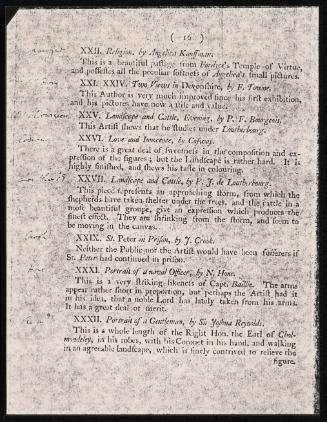 ( 16 )
XXII. Religion, by Angelica Kauffman.
This is a beautiful passage from Fordyce's Temple of Virtue,
and possesses all the peculiar softness of Angelica's small pictures.
XXI. XXIV. Two Views in Devonshire, by F. Towne.
This Author is very much improved since his first exhibition,
and his pictures have now a stile and value.
XXV. Landscape and Cattle, Evening, by P. F. Bourgeois.
This Artist shews that he studies under Loutherbourg.
XXVI. Love and Innocence, by Cosway.
There is a great deal of sweetness in the composition and ex-
pression of the figures; but the Landscape is rather hard. It is
highly finished, and shews his taste in colouring.
XXVII. Landscape and Cattle, by P. J. de Loutherbourg.
This piece represents an approaching storm, from which the
shepherds have taken shelter under the trees, and the cattle in a
most beautiful groupe, give an expression which produces the
finest effect. They are shrinking from the storm, and seem to
be moving in the canvas.
XXIX. St. Peter in Prison, by J. Crook.
Neither the Public nor the Artist would have been sufferers if
St. Peter had continued in prison.
XXXI. Portrait of a naval Officer, by N. Hone.
This is a very striking likeness of Capt. Baillie. The arms
appear rather short in proportion, but perhaps the Artist had it
in his idea, that a noble Lord has lately taken from his arms.
It has a great deal of merit.
XXXII. Portrait of a Gentleman, by Sir Joshua Reynolds.
This is a whole length of the Right Hon. the Earl of Chol-
mondeley, in his robes, with his Coronet in his hand, and walking
in an agreeable landscape, which is finely contrived to relieve the
figure.